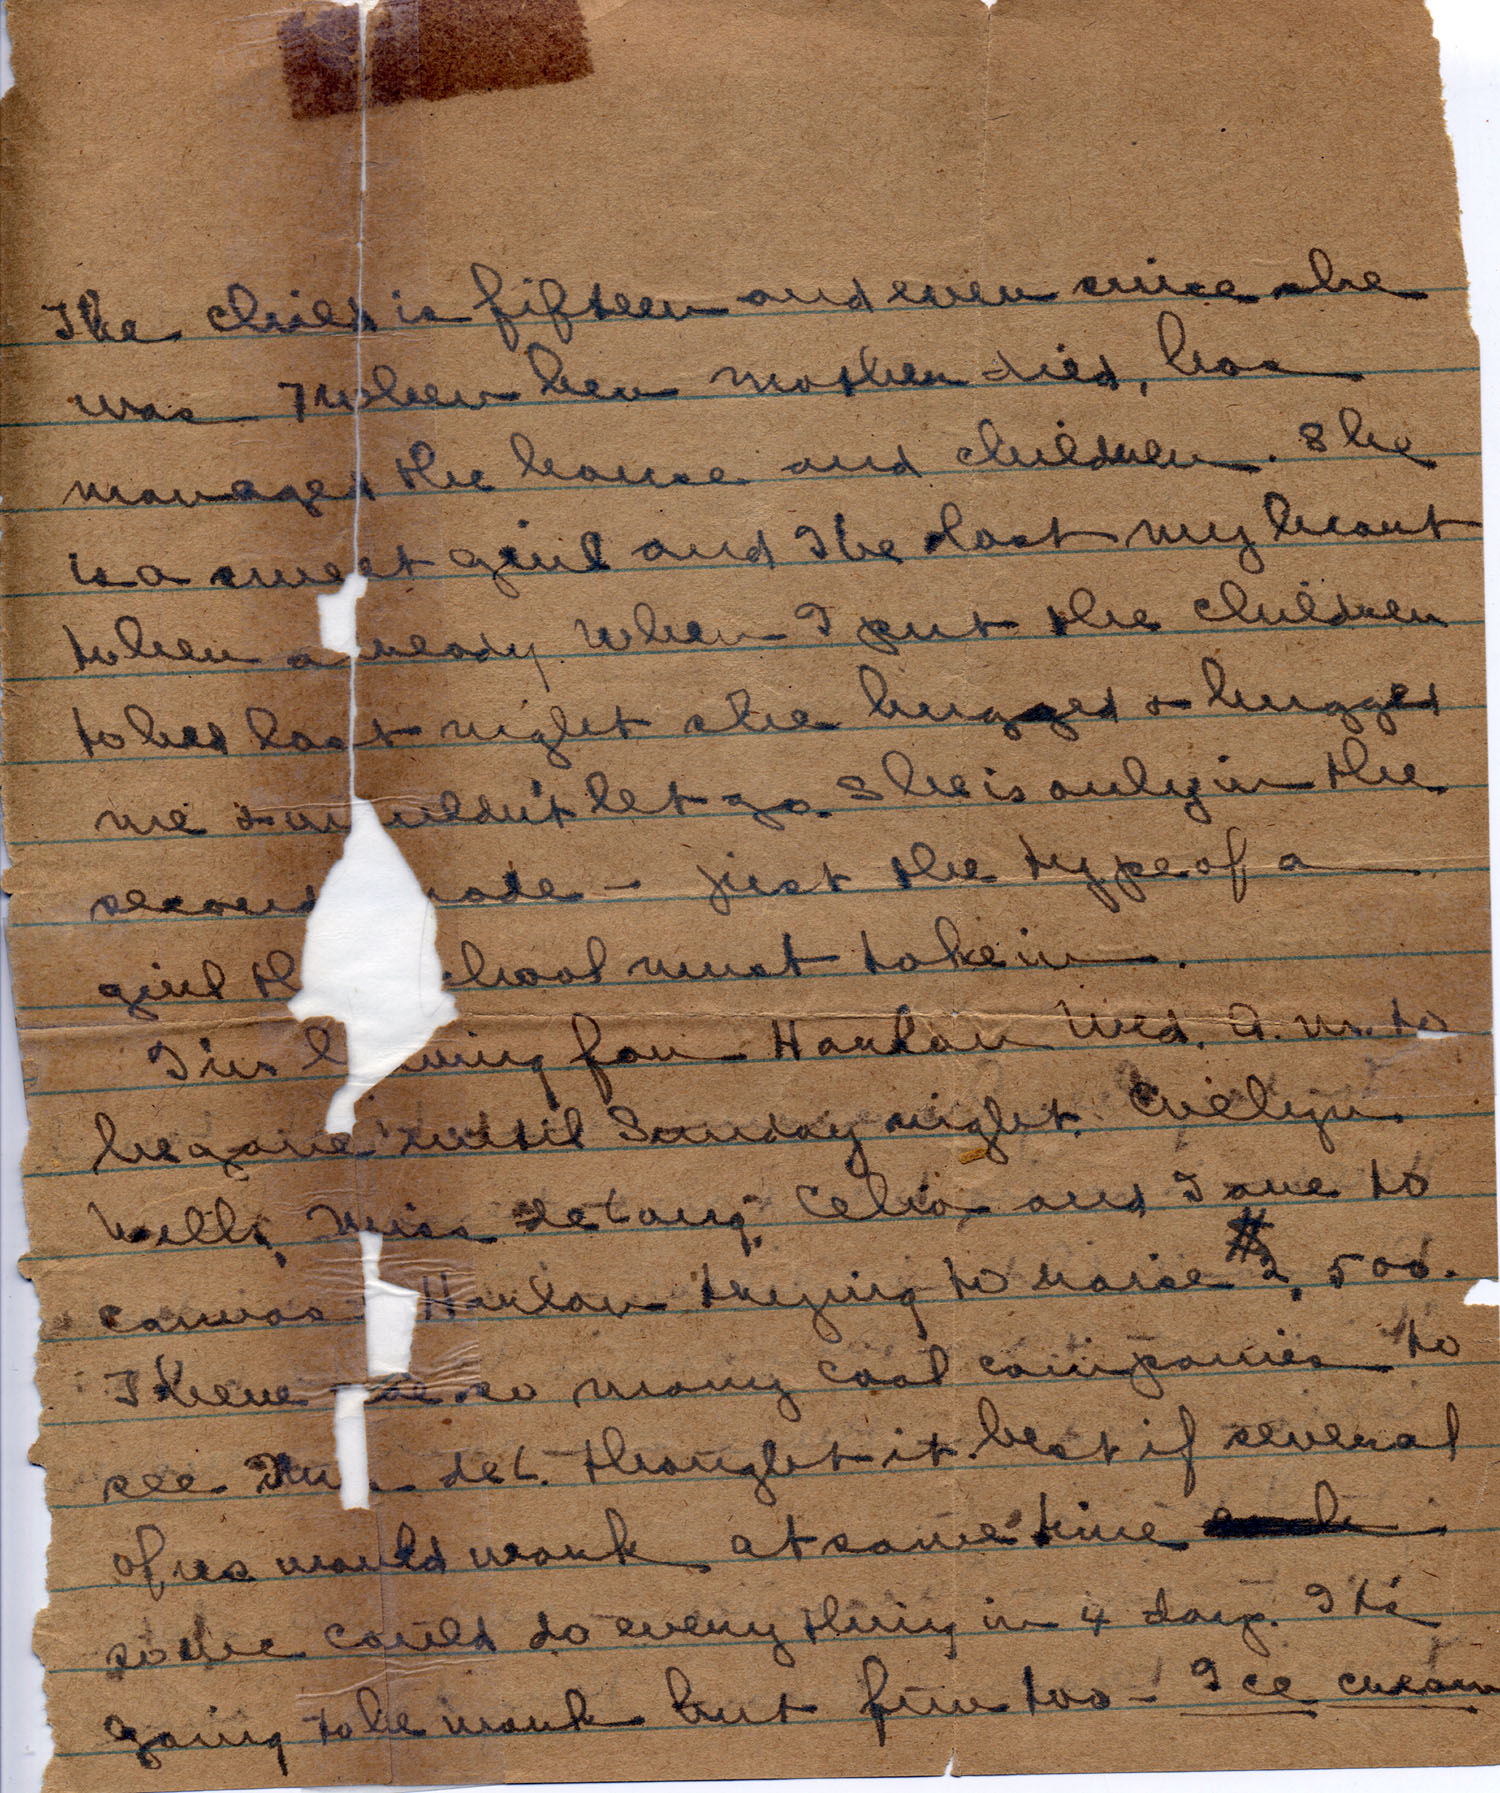 The child is fifteen and ever since she
was 7 when her mother died, has
managed the house and children. She
is a sweet girl and I've lost my heart
to her a ready. When I put the children
to bed last night she hugged & hugged
me & wouldn't let go. She is only in the
second ade – just the type of a
girl th chool must take in.
I'm l ving for Harlan Wed. A.M. to
be gone until Sunday night. Evelyn
Wells, Miss de Long, Celia, and I are to
canvas Harlan trying to raise $2,500.
There are so many coal companies to
see Miss de L. thought it best if several
of us would work at same time
so we could do everything in 4 days. It's
going to be work but fun too – Ice cream